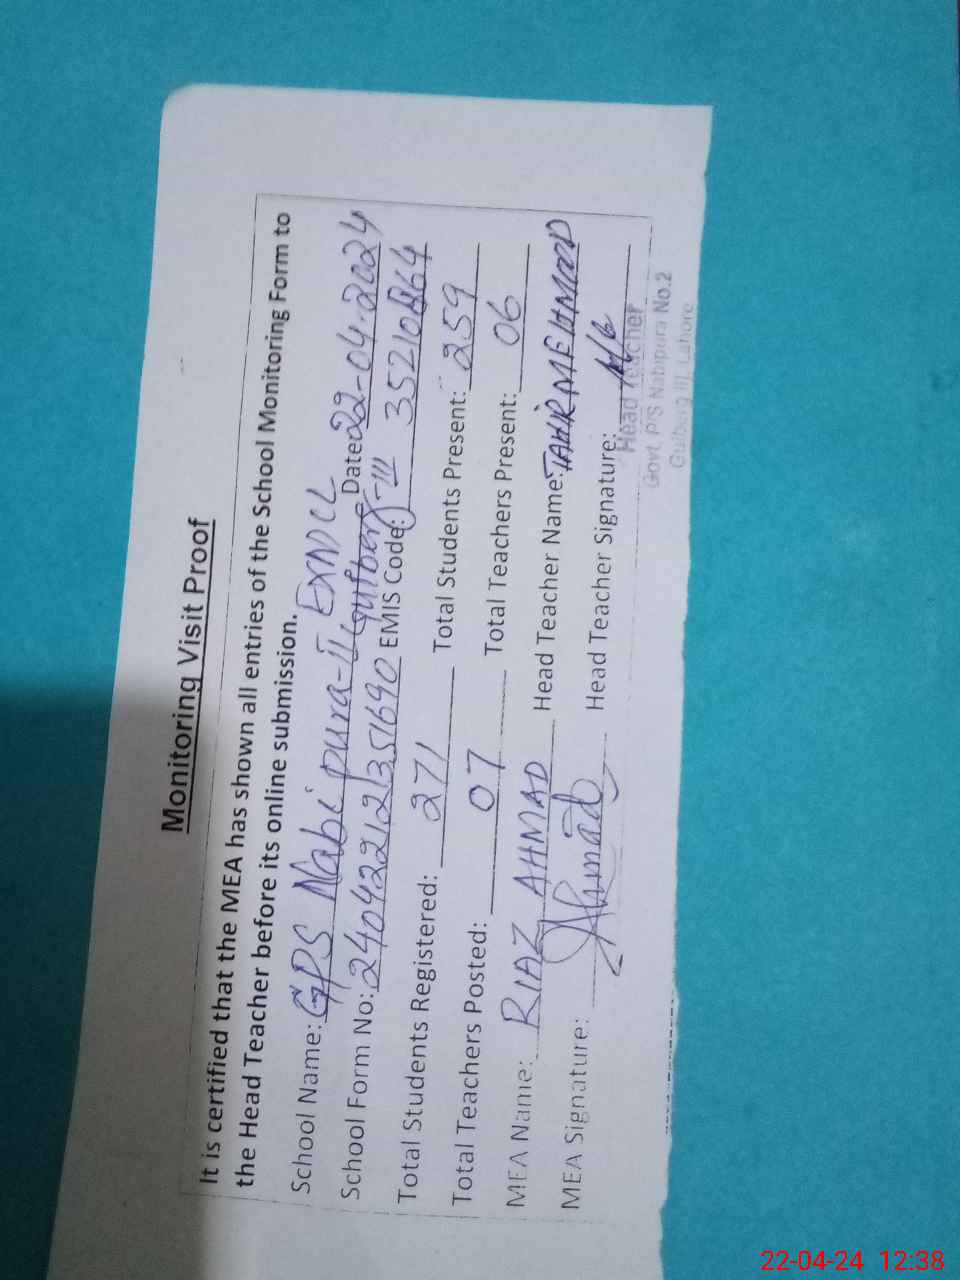 Monitoring Visit Proof
It is certified that the MEA has shown all entries of the School Monitoring Form to
the Head Teacher before its online submission.
School Name: GPS Nabi pura-II EXNCL Gulberg-III Date 22-04-2024
School Form No: 24042212351690 EMIS Code: 35210864
Total Students Registered: 271 Total Students Present: 259
Total Teachers Posted: 07 Total Teachers Present: 06
MEA Name: RIAZ AHMAD Head Teacher Name: TAHIR MEHMOOD
MEA Signature: Ahmad Head Teacher Signature:
Head Teacher
Govt. P/S Nabipura No.2
Gulberg III, Lahore
22-04-24 12:38